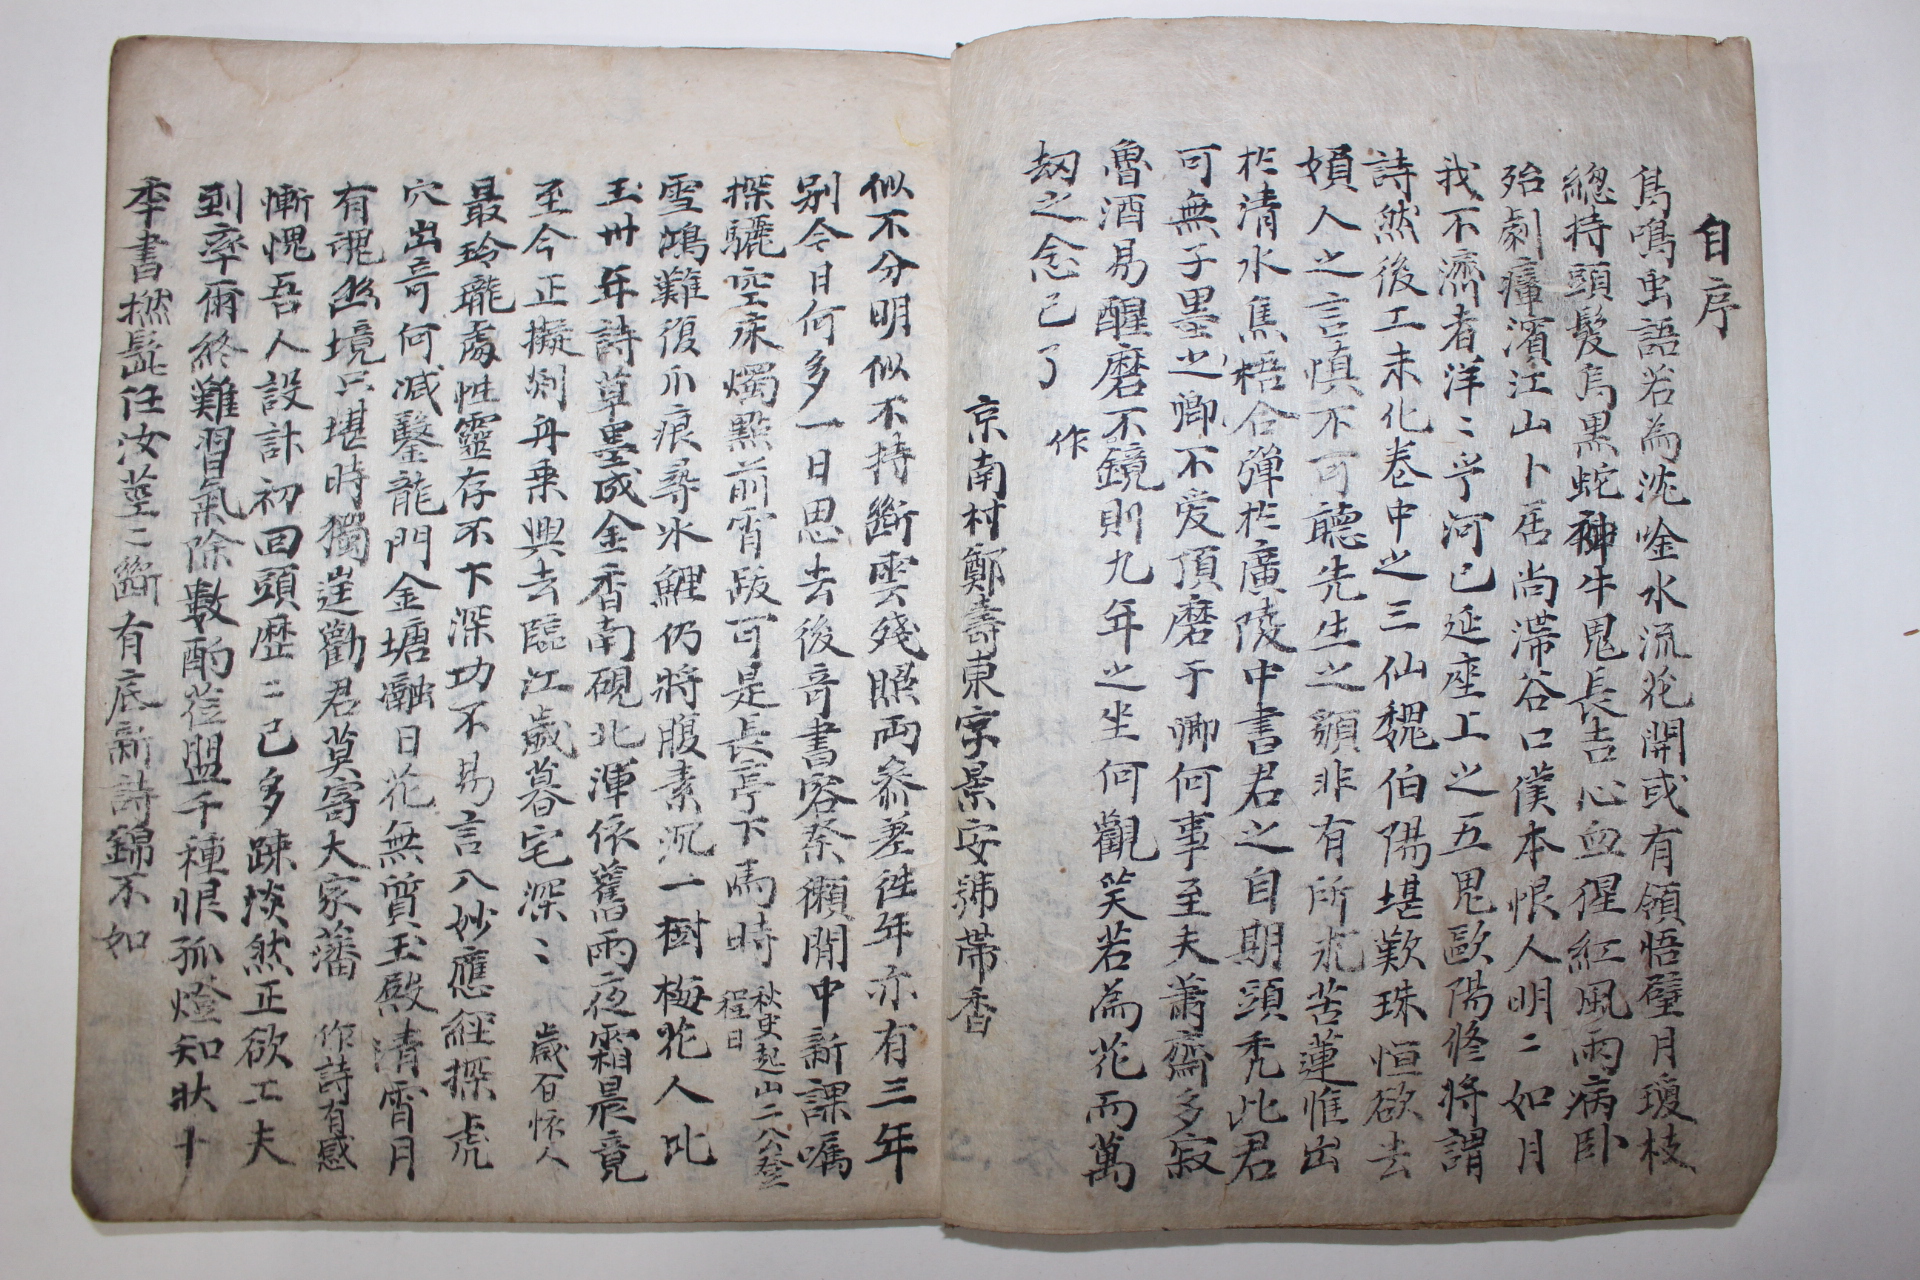 自序
鳥鳴虫語若為沈唫水流花開或有領悟璧月瓊枝
總持頭髮烏黒蛇神牛鬼長吉心血猩紅風雨病卧
殆劇癉濱江山卜居尚滯谷口僕本恨人明〻如月
我不濟者洋〻乎河已延座上之五鬼歐陽修將謂
詩然後工未化卷中之三仙魏伯陽堪歎珠恒欲去
娟人之言慎不可聽先生之顙非有所泚苦蓮惟出
於清水焦梧合彈於廣陵中書君之自期頭禿此君
可無子墨之卿不爱頂磨于卿何事至夫蕭齋多寂
魯酒易醒磨不鏡則九年之坐何觀笑若為花而萬
劫之念已了 作
京南村鄭壽東字景安號帶香
似不分明似不持斷雲殘照両叅差徃年亦有三年
别今日何多一日思去後音書容祭懶閒中新課嘱
探驪空床燭點前宵跋可是長亭下馬時 秋史起山二公登程日
雪鴻難復爪痕尋氷鯉仍將腹素沉一樹梅花人比
玉卅年詩草墨成金香南硯北渾依舊雨夜霜晨竟
至今正擬剡舟乗興去臨江歲暮宅深〻 歲百懷人
最玲瓏處性靈存不下深功不易言八妙應經探虎
穴出奇何减鑿龍門金塘瀜日花無質玉殿清霄月
有魂幽境只堪時獨逞勸君莫寄大家藩 作詩有感
慚愧吾人設計初回頭歷〻已多踈淡然正欲工夫
到率爾終難習氣除數酌花盟千種恨孤燈知状十
季書撚髭任汝莖〻斷有底新詩錦不如